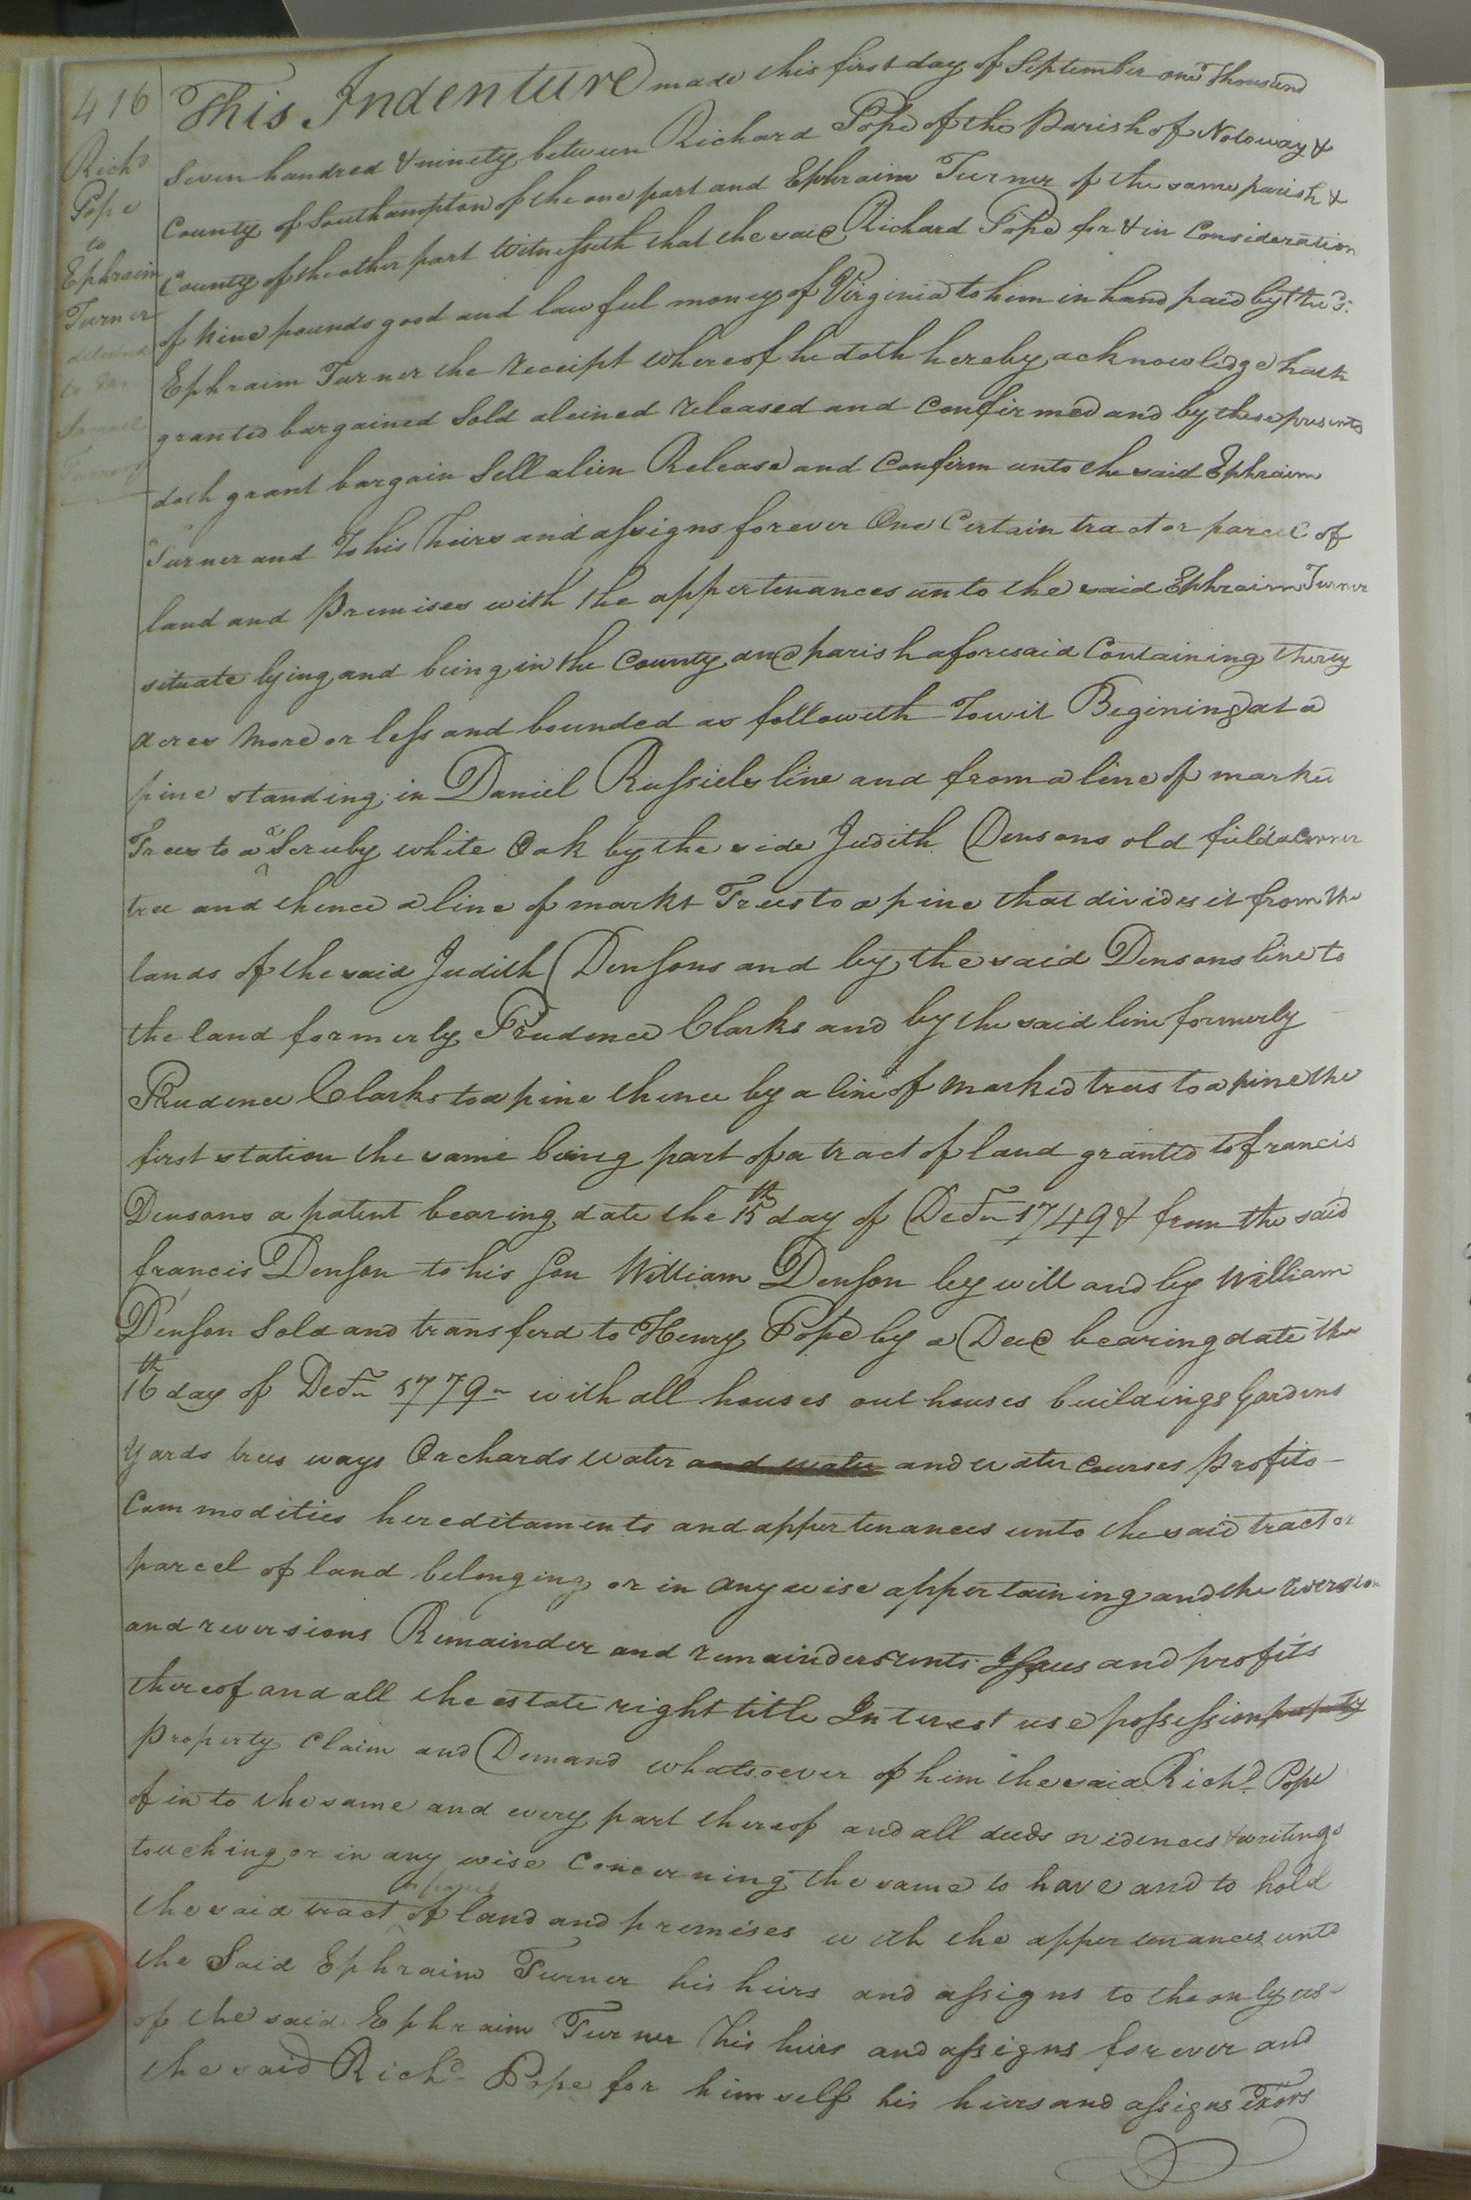 416
Rich.d
Pope
to
Ephraim
Turner
to
This Indenture made this first day of September one Thousand
Seven hundred & ninety between Richard Pope of the Parish of Notoway &
County of Southampton of the one part and Ephraim Turner of the same parish &
County of the other part Witnesseth that the said Richard Pope for & in Consideration
of Nine pounds good and lawful money of Virginia to him in hand paid by the s.
Ephraim Turner the receipt whereof he doth hereby acknowledge hath
granted bargained Sold aleined released and Confirmed and by these presents
doth grant bargain Sell alien Release and Confirm unto the said Ephraim
Turner and To his heirs and assigns forever One Certain tract or parcel of
land and Premises with the appertenances unto the said Ephraim Turner
situate lying and being in the County and parish aforesaid Containing therty
acres more or less and bounded as followeth Towit Begining at a
pine standing in Daniel Russiels line and from a line of marked
Trees to a Scruby white Oak by the side Judith Densons old field a Corner
tree and thence a line of markt Trees to a pine that divides it from the
lands of the said Judith Densons and by the said Densons line to
the land formerly Prudence Clarks and by the said line formerly
Prudence Clarks to a pine thence by a line of Marked trees to a pine the
first station the same being part of a tract of land granted to francis
Densons a patent bearing date the 15th day of Decr 1749 & from the said
francis Denson to his Son William Denson by will and by William
Denson Sold and transferd to Henry Pope by a Deed bearing date the
16th day of Decr 1779 with all houses out houses buildings Gardens
Yards trees ways Orchards water and water and water Courses Profits
Commodities hereditaments and appertenances unto the said tract or
parcel of land belonging or in any wise appertaining and the reversion
and reversions Remainder and remainders rents Issues and profits
thereof and all the estate right title Interest use possession property
Property Claim and Demand whatsoever of him the said Rich.d Pope
of in to the same and every part thereof and all deeds evidences & writings
touching or in any wise Concerning the same to have and to hold
the said tract or parcel of land and premises with the appertenances unto
the Said Ephraim Turner his heirs and assigns to the only use
of the said Ephraim Turner his heirs and assigns forever and
the said Rich.d Pope for himself his heirs and assigns Exors